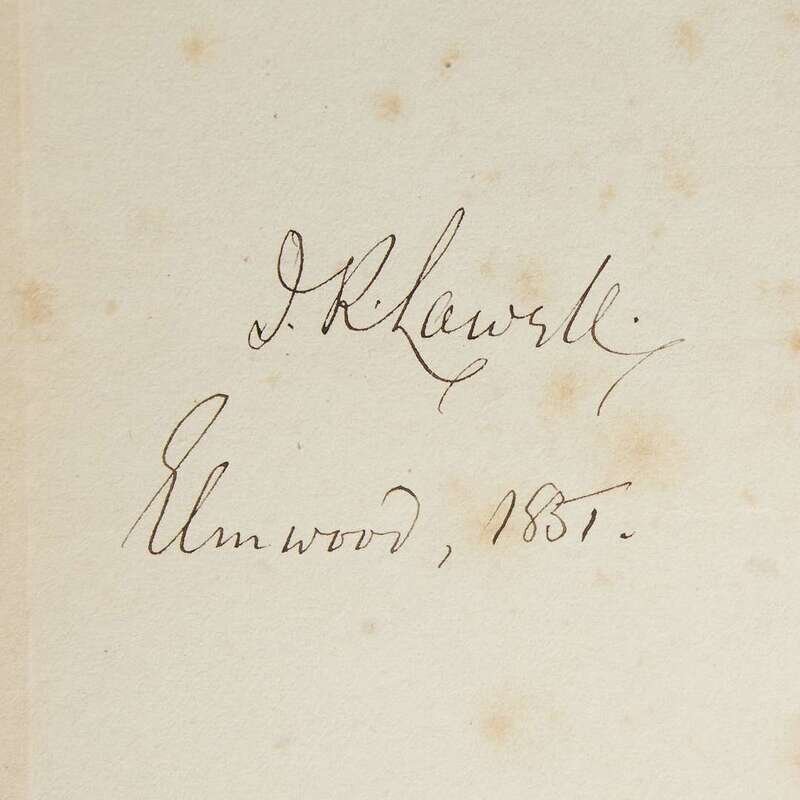 J. R. Lowell.
Elmwood, 1851.